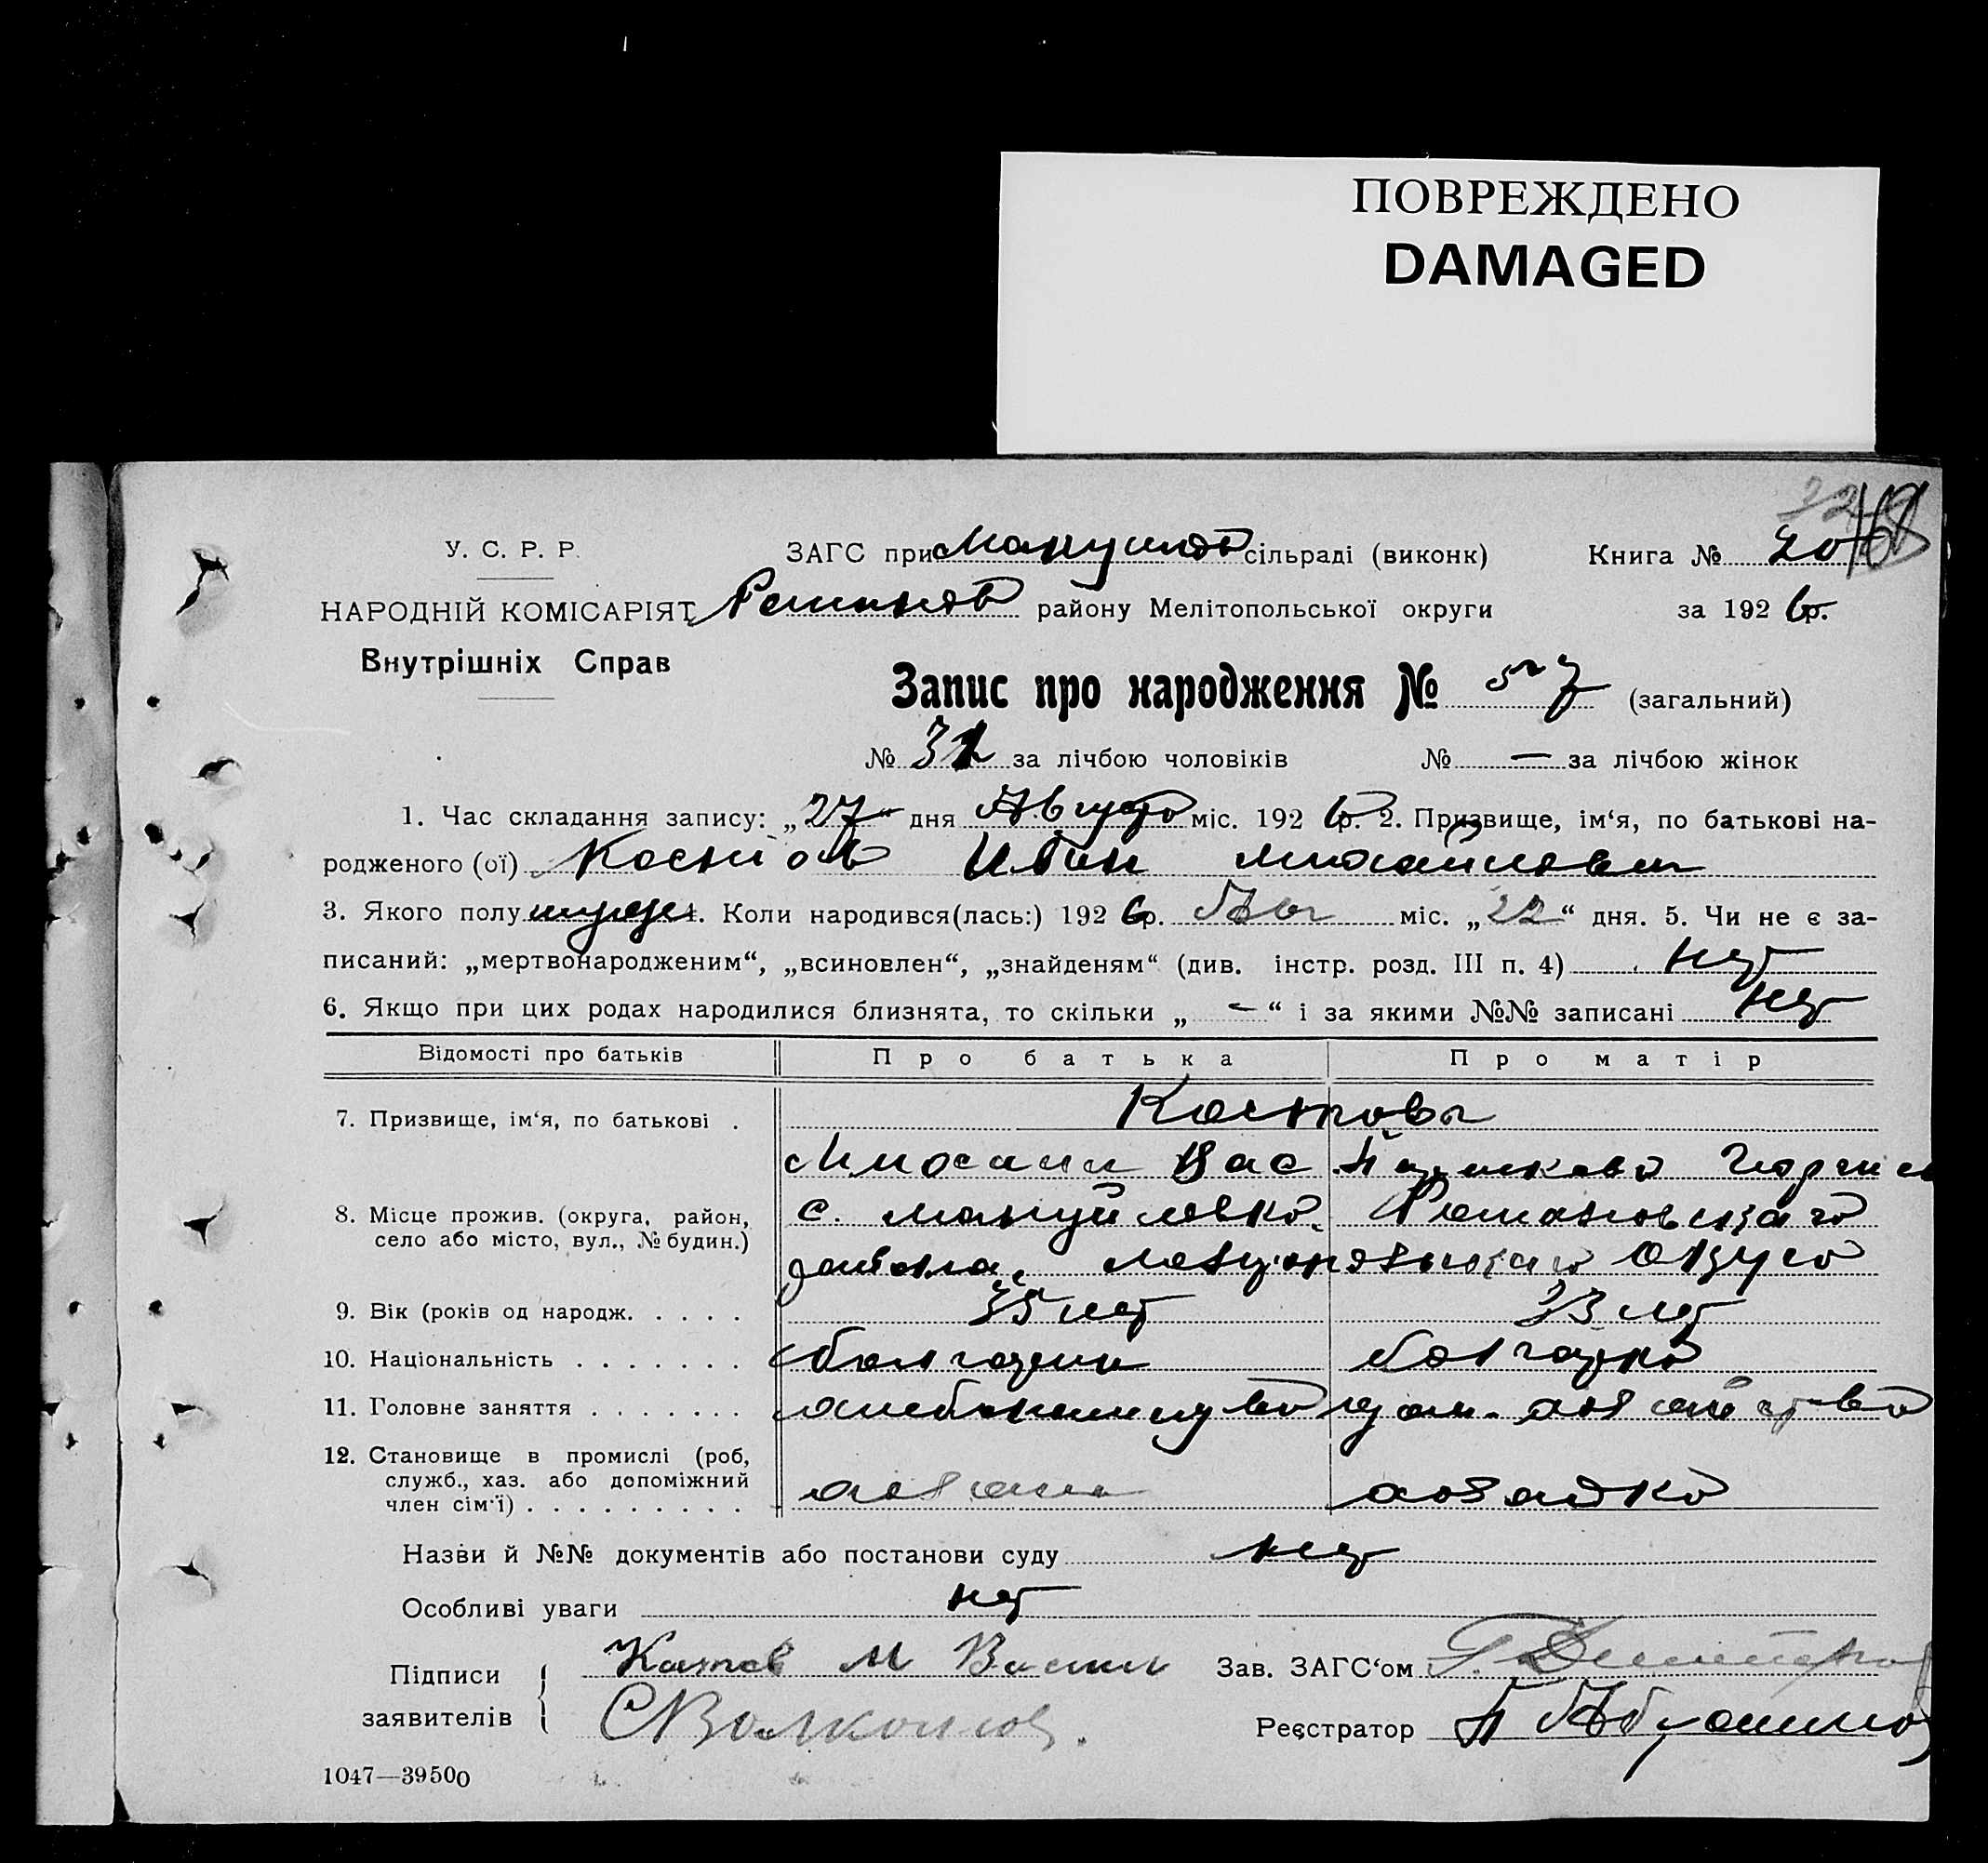 ПОВРЕЖДЕНО
DAMAGED
У. С. Р. Р.
ЗАГС при сільраді (виконк)
Книга № 20
НАРОДНІЙ КОМІСАРІЯТ
району Мелітопольської округи
за 1926 р.
Внутрішніх Справ
Запис про народження № 57 (загальний)
№ за лічбою чоловіків № — за лічбою жінок
1. Час складання запису: „27“ дня Августа міс. 1926 р. 2. Призвище, ім‘я, по батькові на-
родженого (ої) Костов Иван Михайлович
3. Якого полу муж 4. Коли народився(лась:) 1926 р. Авг міс. „22“ дня. 5. Чи не є за-
писаний: „мертвонародженим“, „всиновлен“, „знайденям“ (див. інстр. розд. III п. 4) нет
6. Якщо при цих родах народилися близнята, то скільки „ — “ і за якими №№ записані нет
Відомості про батьків Про батька Про матір
7. Призвище, ім‘я, по батькові . Костовы
Михаил Вас
8. Місце прожив. (округа, район, село або місто, вул., № будин.)
с. Мануйловка, Романовского
района, округа
9. Вік (років од народж. . . . . 35 лет 33 лет
10. Національність . . . . . . . болгарин болгарка
11. Головне заняття . . . . . . . хлебопашество дом. хозяйство
12. Становище в промислі (роб, служб., хаз. або допоміжний член сім‘ї) . . . . . . . . . хозяин хозяйка
Назви й №№ документів або постанови суду нет
Особливі уваги нет
Підписи заявителів
Костов М Васил
Зав. ЗАГС‘ом Г. Димитров
Реєстратор
1047—39500